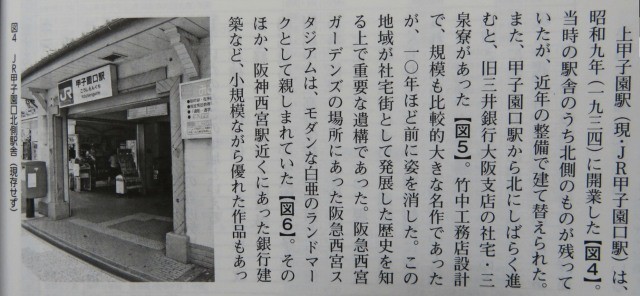 上甲子園駅（現・ＪＲ甲子園口駅）は、
昭和九年（一九三四）に開業した【図４】。
当時の駅舎のうち北側のものが残って
いたが、近年の整備で建て替えられた。
また、甲子園口駅から北にしばらく進
むと、旧三井銀行大阪支店の社宅・三
泉寮があった【図５】。竹中工務店設計
で、規模も比較的大きな名作であった
が、一〇年ほど前に姿を消した。この
地域が社宅街として発展した歴史を知
る上で重要な遺構であった。阪急西宮
ガーデンズの場所にあった阪急西宮ス
タジアムは、モダンな白亜のランドマー
クとして親しまれていた【図６】。その
ほか、阪神西宮駅近くにあった銀行建
築など、小規模ながら優れた作品もあっ
JR 甲子園口駅
こうしえんぐち
Kōshienguchi
図４　ＪＲ甲子園口北側駅舎（現存せず）